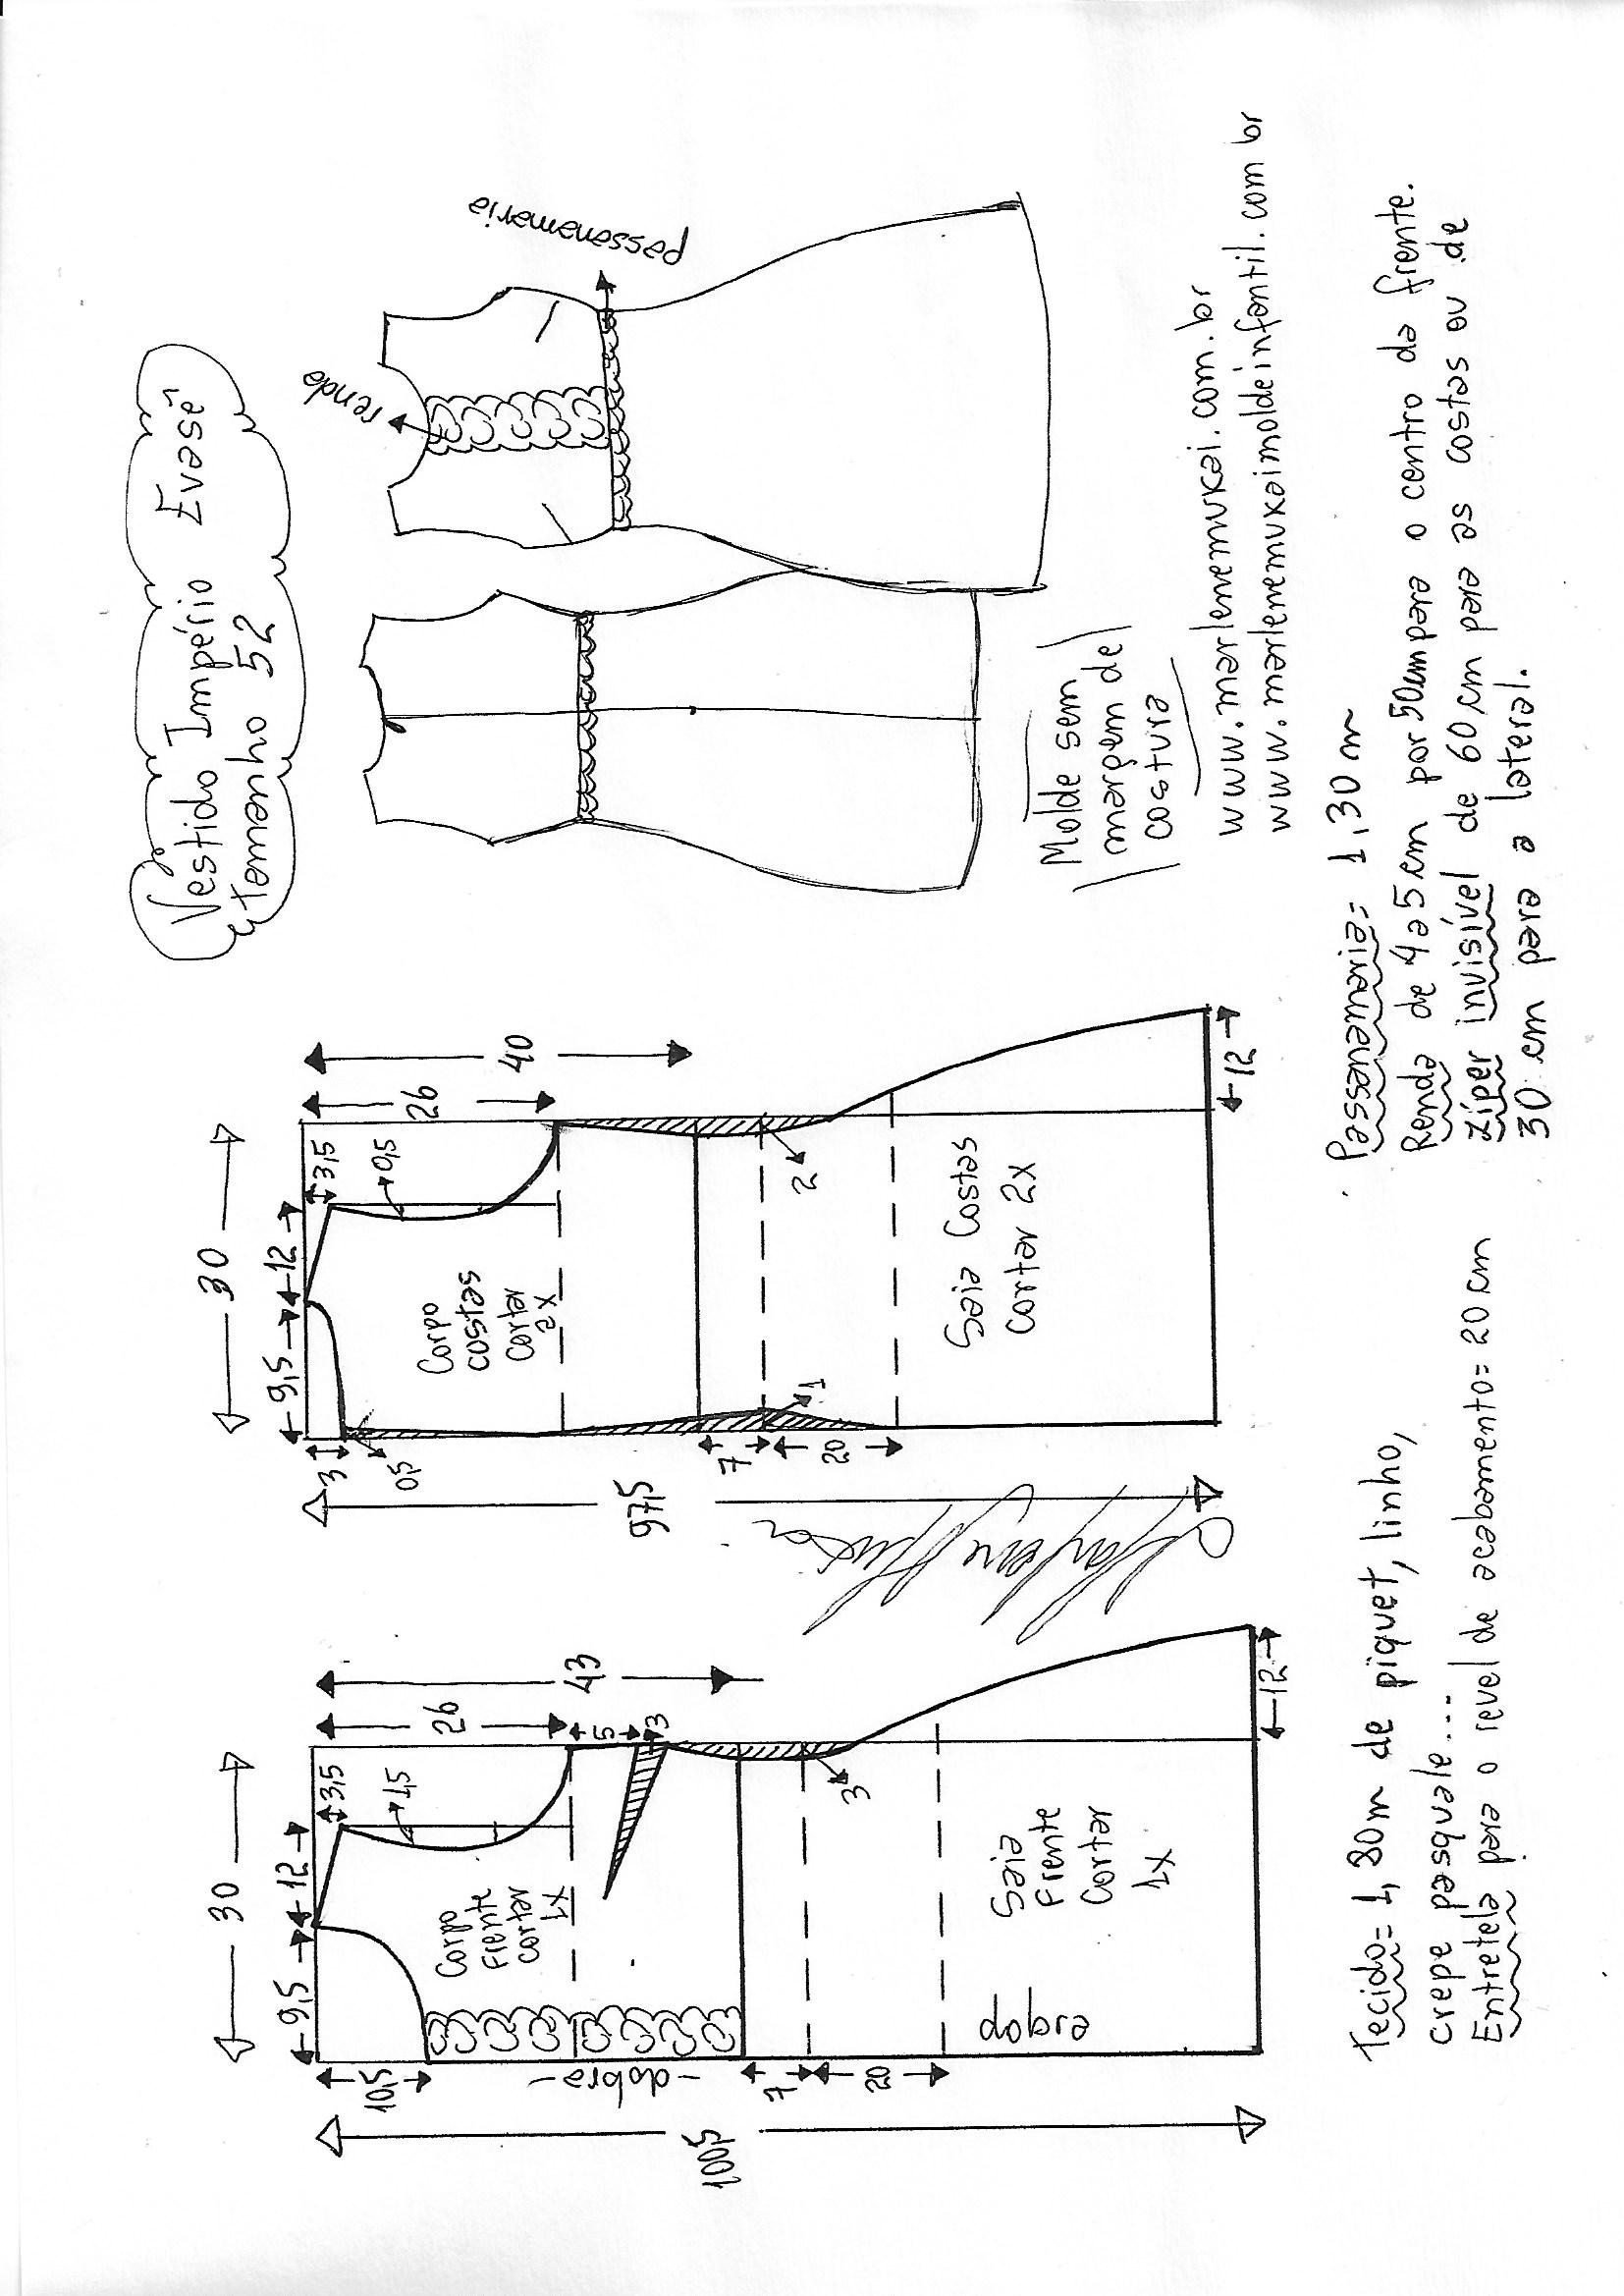 Vestido Império Evasê
tamanho 52
30
9,5
12
3,5
10,5
1,5
26
43
5
3
Corpo
Frente
cortar
1x
-dobra-
7
3
20
100,5
Saia
Frente
Cortar
1x
dobra
12
30
9,5
12
3,5
3
0,5
0,5
26
40
Corpo
costas
cortar
2x
7
1
2
20
97,5
Saia Costas
Cortar 2x
12
renda
passanamaria
Molde sem
margem de
costura
www.marlenemukai.com.br
www.marlenemukaimoldeinfantil.com br
Tecido= 1,80m de piquet, linho,
crepe pasquale....
Entretela para o revel de acabamento= 20 cm
Passanamaria= 1,30 m
Renda de 4 a 5 cm por 50cm para o centro da frente.
Zíper invisível de 60 cm para as costas ou de
30 cm para a lateral.